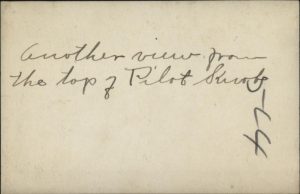 Another view from
the top of Pilot Knob